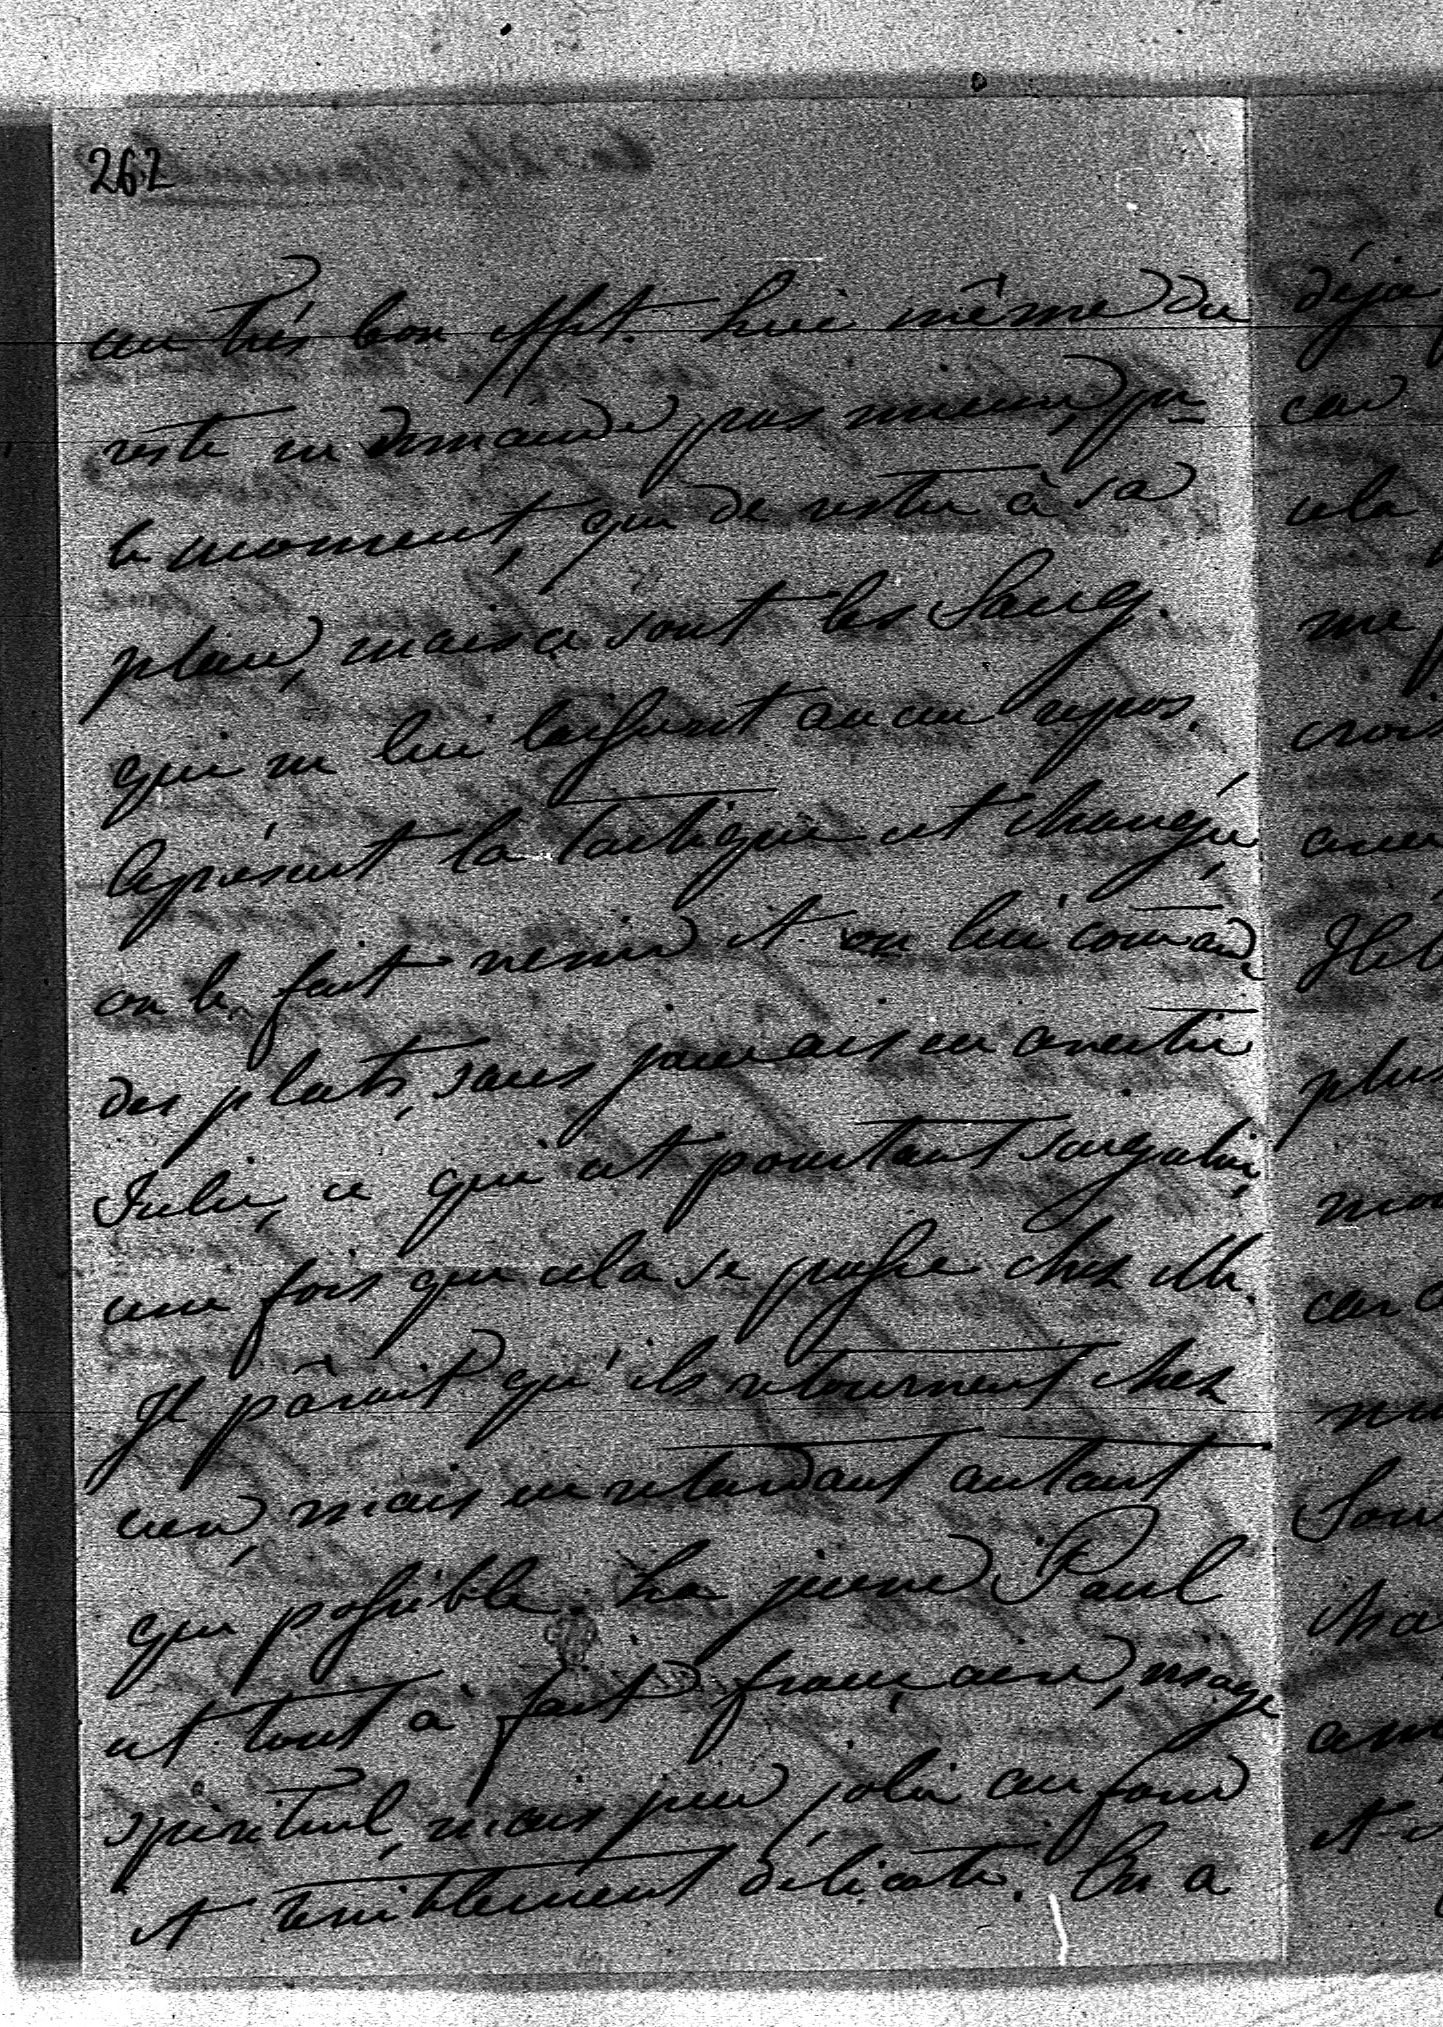 262
un très bon effet. Lui même du
reste ne demande pas mieux, p<sup>r</sup>
le moment, que de rester à sa
place, mais ce sont les Sang.
qui ne lui laissent aucun repos.
Aprésent la tactique est changée,
on le fait venir et on lui comande
des plats, sans jamais en avertir
Julie, ce qui est pourtant singulier,
une fois que cela se passe chez elle.
Il parait qu'ils retournent chez
eux, mais en retardant autant
que possible. La jeune Paul
est tout à fait française, visage
spirituel, mais peu jolie au fond
et terriblement délicate. On a
déjà
car
cela
me
crois
plus